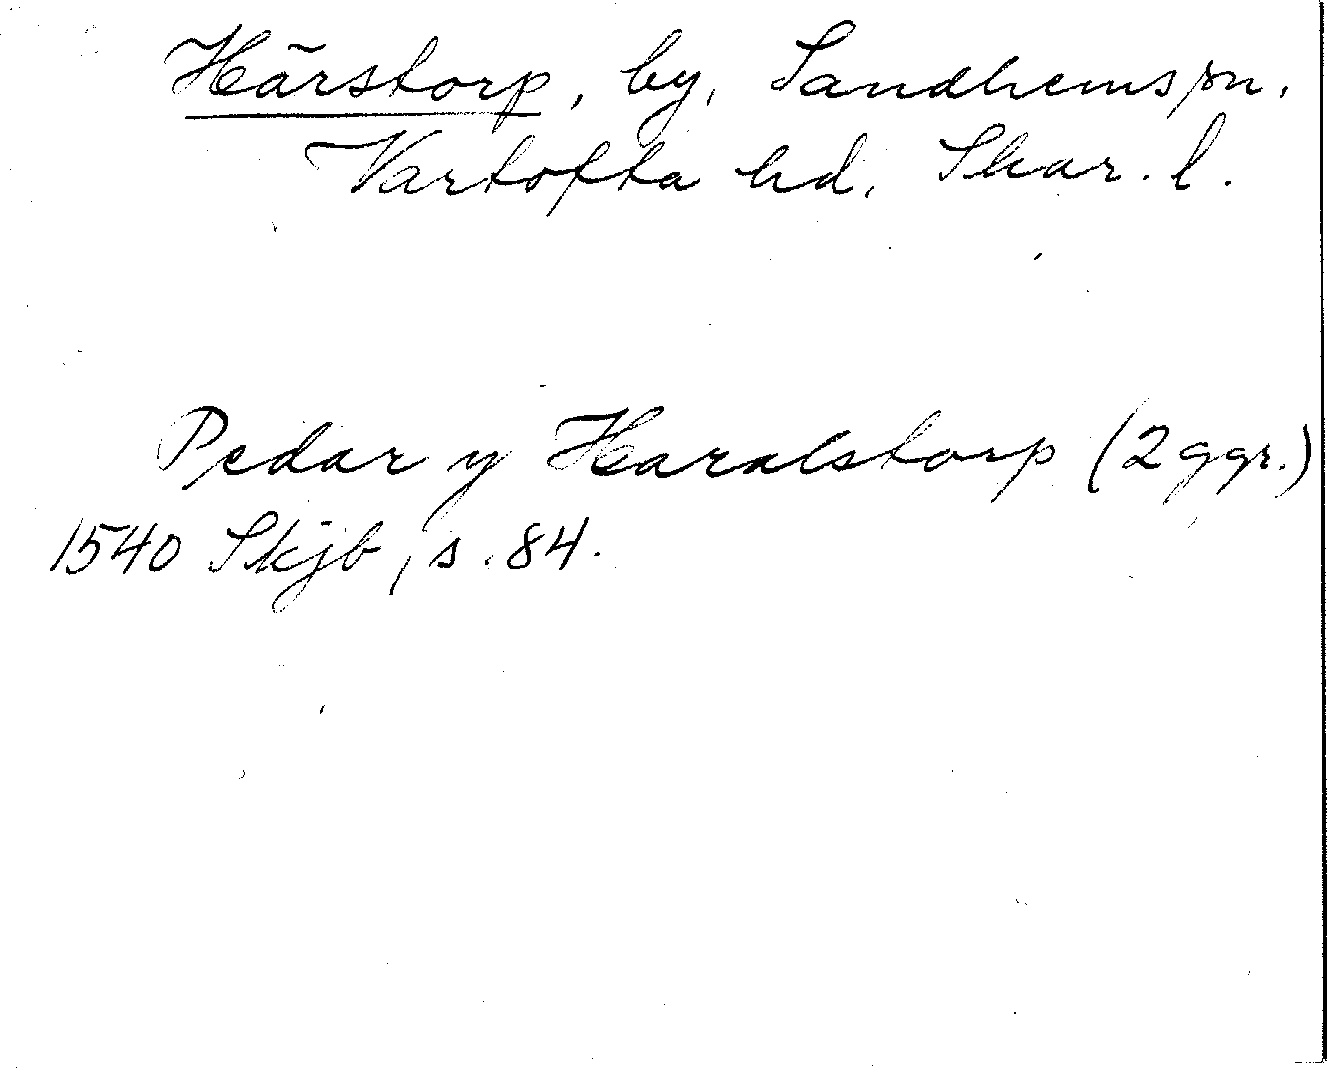 Härstorp, by, Sandhems sn.
Vartofta hd, Skar. l.
Pedar y Haralstorp (2 ggr.)
1540 Skjb, s. 84.